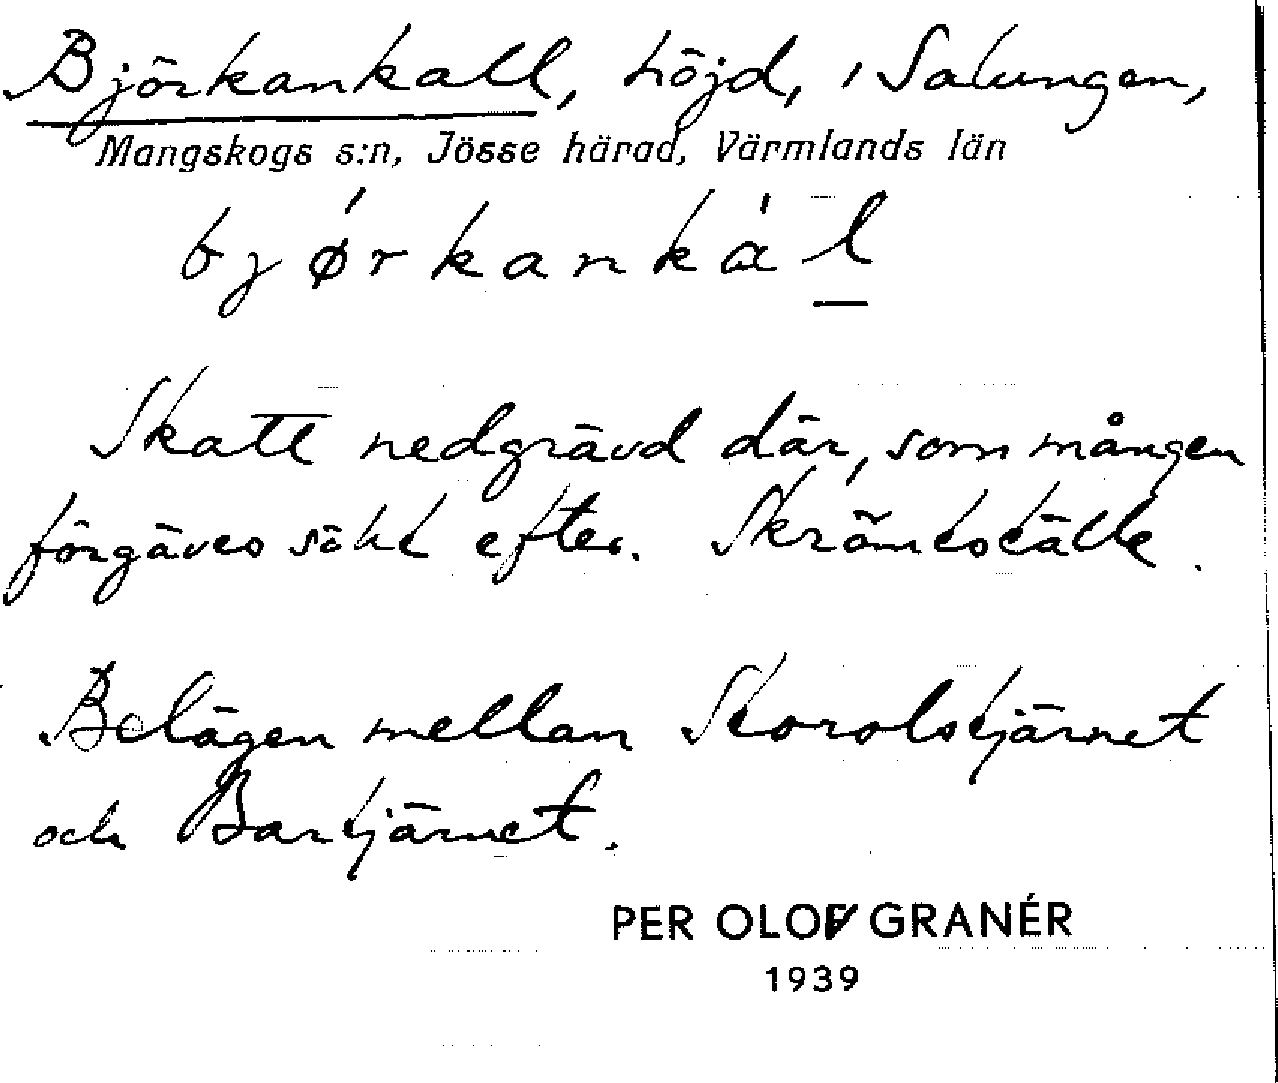 Björkankall, höjd, i Salungen,
Mangskogs s:n, Jösse härad, Värmlands län
bjørkankàl
Skatt nedgrävd där, som mången
förgäves sökt efter. Skrämtställe.
Belägen mellan Storolstjärnet
och Bartjärnet.
PER OLOF GRANÉR
1939